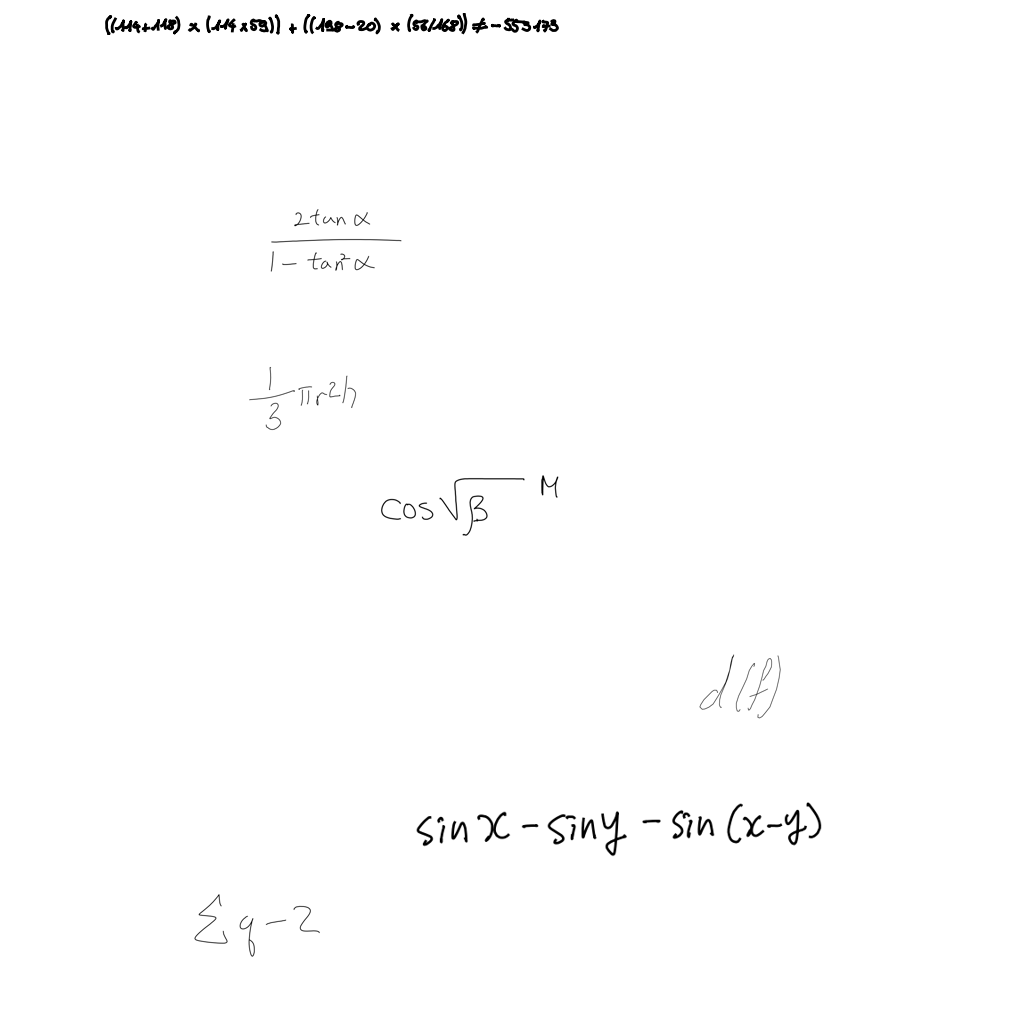 ((114+118) × (114×59)) + ((198-20) × (56/168)) ≠ -553173
\frac{2 \tan α}{1 - \tan^2 α}
\frac{1}{3} π r^2 h
cos √β M
d(f)
sin x - sin y - sin (x-y)
Σ q - 2